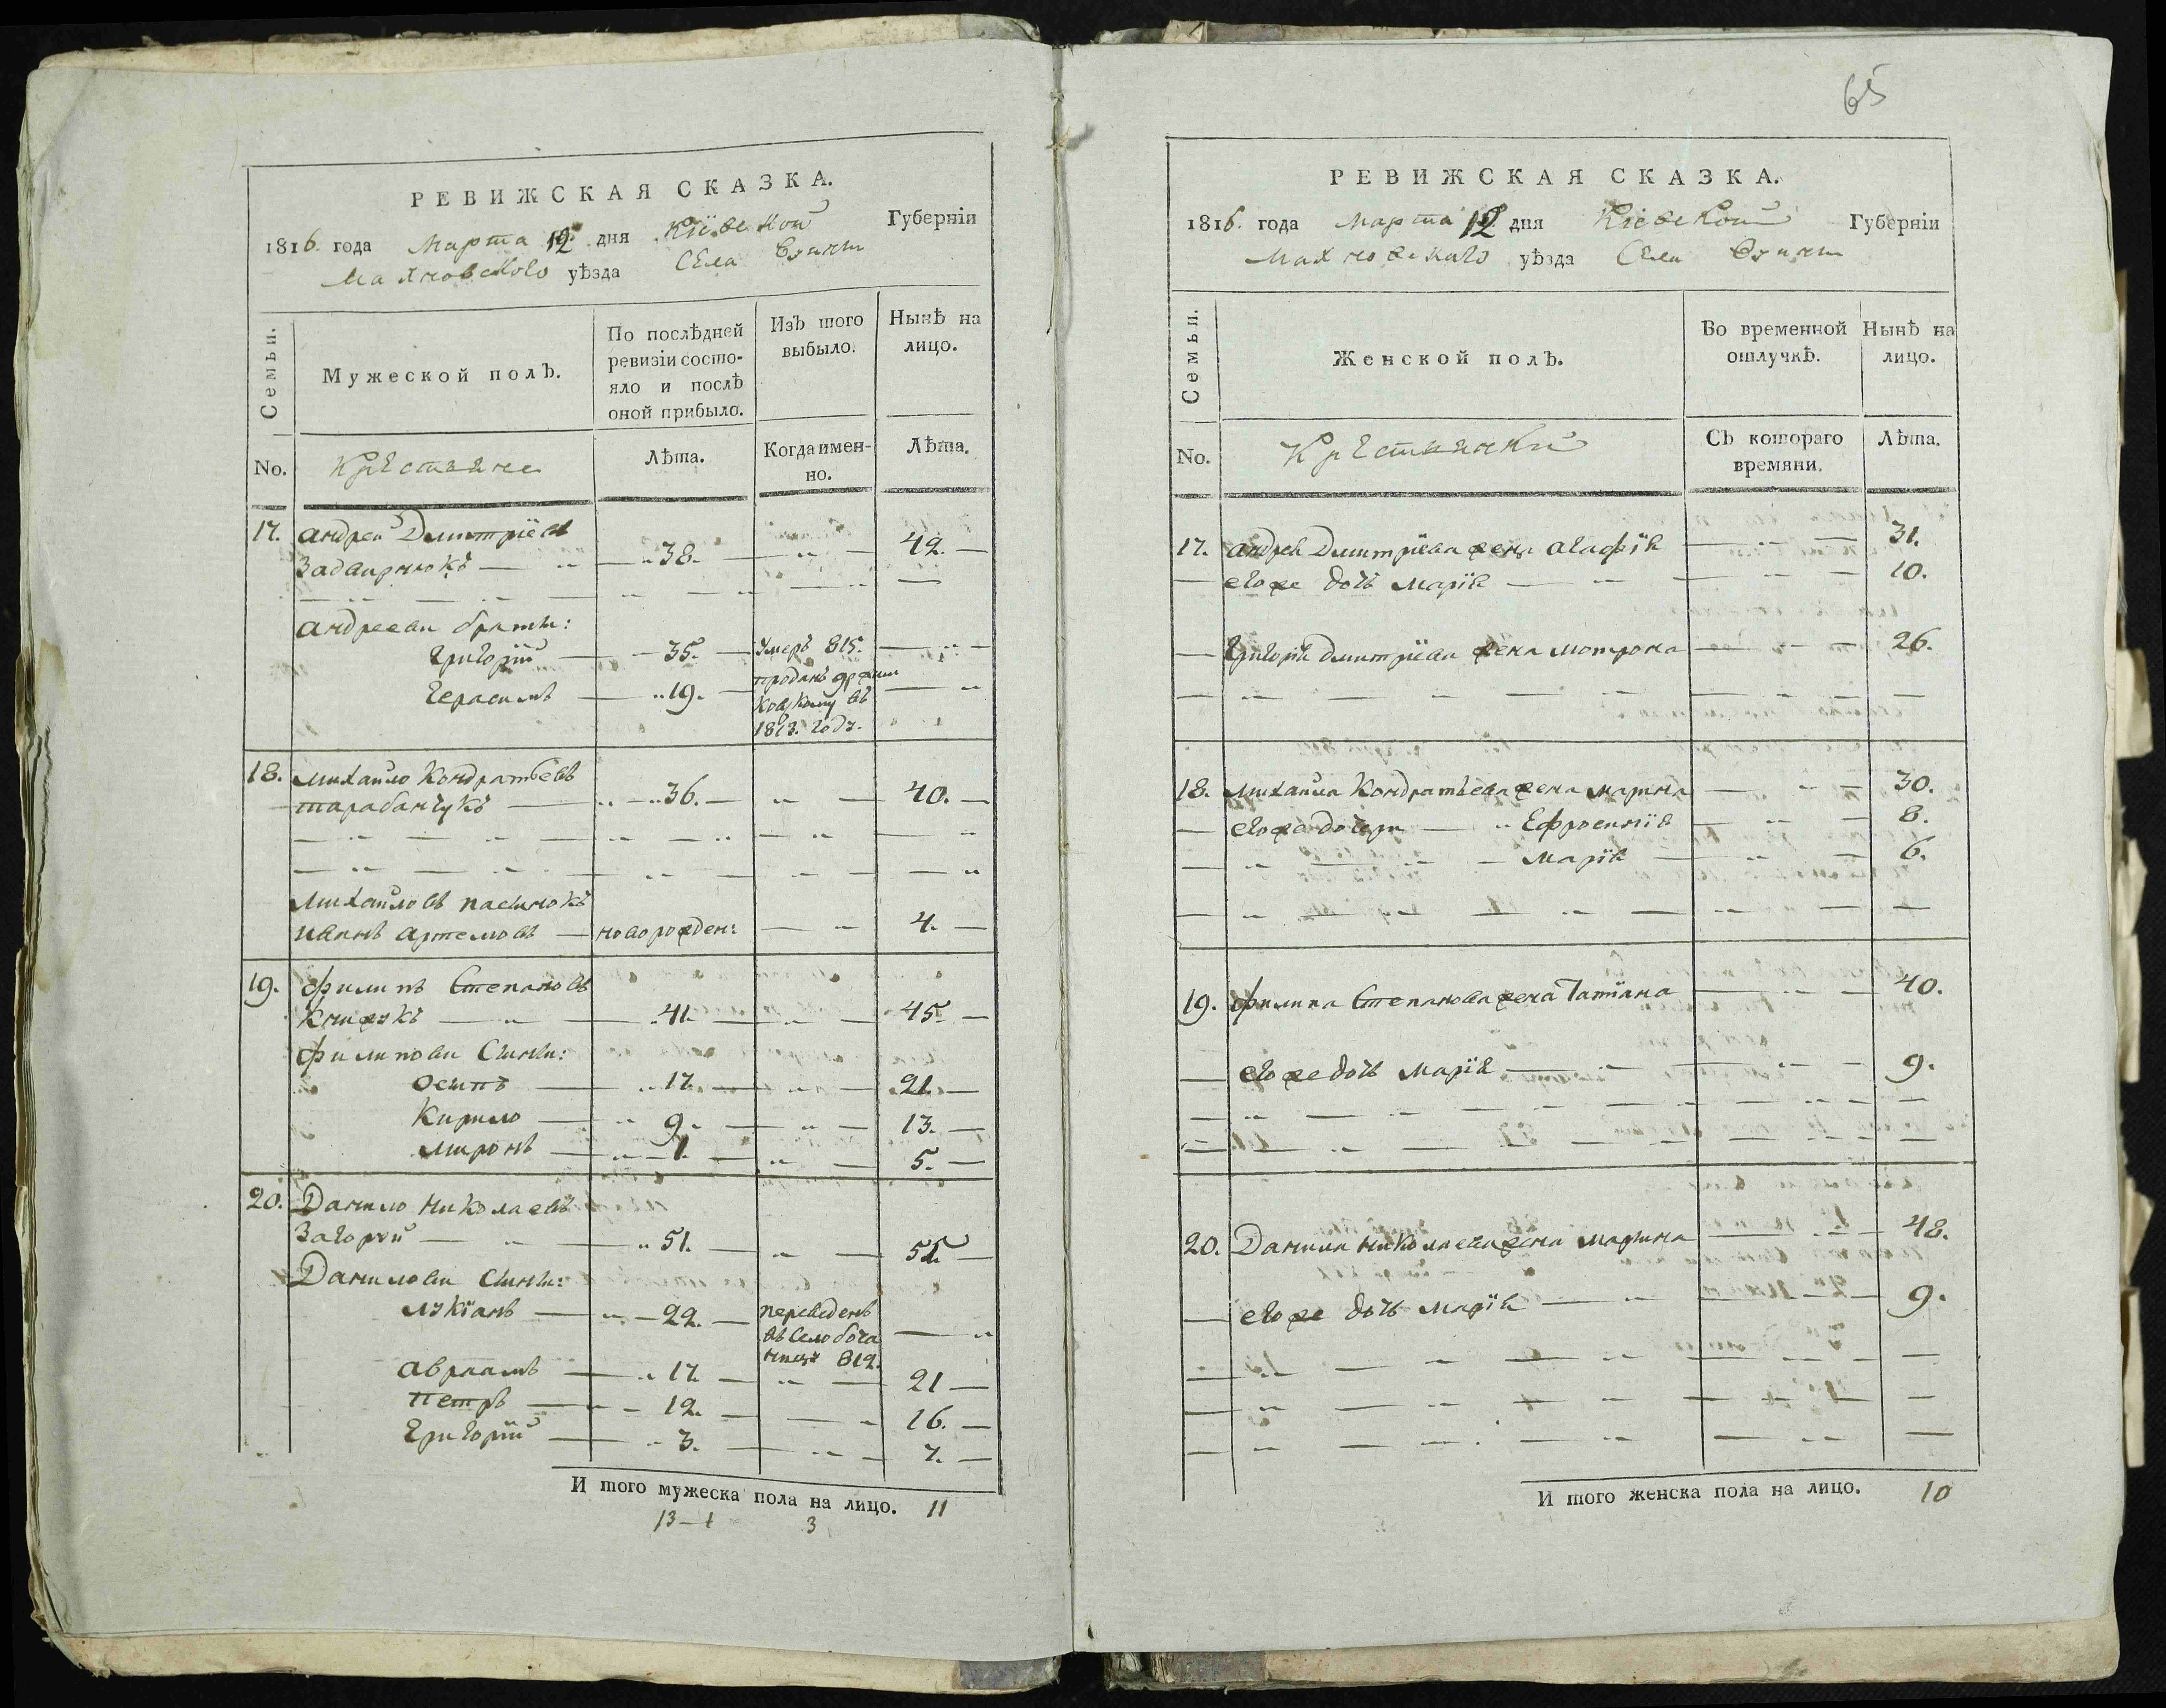 РЕВИЖСКАЯ СКАЗКА.
1816. года Марта 12 дня Кіевской Губерніи
Махновского уѣзда Села
Семьи.
Мужеской полъ.
По послѣдней ревизіи состояло и послѣ оной прибыло.
Изъ того выбыло.
Нынѣ на лицо.
No. Крестьяне Лѣта. Когда именно. Лѣта.
17. Андрей Дмитріевъ
38. 42.
Андреевы браты:
Григорій 35. Умеръ 815.
Герасимъ 19. проданъ
въ
1813. годъ.
18. Михайло Кондратьевъ
Тарабанчукъ 36. 40.
Михайловъ пасынокъ
Иванъ Артемовъ новорожден: 4.
19. Филипъ Степановъ
Книжукъ 41. 45.
Филиповы Сыны:
Осипъ 17. 21.
Кирило 9. 13.
Миронъ 1. 5.
20. Данило Николаевъ
Загоруй 51. 55
Даниловы Сыны:
Лукіанъ 22. переведенъ
въ Село
812.
Авраамъ 17. 21
Петръ 12. 16.
Григорій 3. 7.
И того мужеска пола на лицо. 11
13 3
65
РЕВИЖСКАЯ СКАЗКА.
1816. года Марта 12 дня Кіевской Губерніи
Махновскаго уѣзда Села
Семьи.
Женской полъ.
Во временной отлучкѣ.
Нынѣ на лицо.
No. Крестьянки Съ котораго времяни. Лѣта.
17. Андрея Дмитріева жена Агафія 31.
его же дочь Марія 10.
Григорія Дмитріева жена Мотрона 26.
18. Михайла Кондратьева жена Марина 30.
его же дочери Ефросинія 8.
Марія 6.
19. Филипа Степанова жена Татіана 40.
его же дочь Марія 9.
20. Данила Николаева жена Марина 48.
его же дочь Марія 9.
И того женска пола на лицо. 10